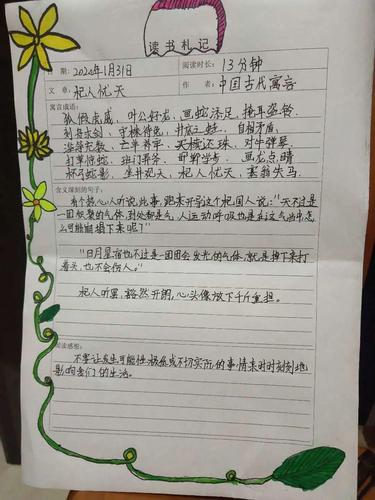 读书札记
日期：2020年1月31日 阅读时长：13分钟
文章：杞人忧天 作者：中国古代寓言
寓言成语：
狐假虎威，叶公好龙，画蛇添足，掩耳盗铃
刻舟求剑，守株待兔，井底之蛙，自相矛盾
滥竽充数，亡羊补牢，买椟还珠，对牛弹琴
打草惊蛇，班门弄斧，邯郸学步，画龙点睛
杯弓蛇影，坐井观天，杞人忧天，塞翁失马
含义深刻的句子：
有个热心人听说此事，跑来开导这个杞国人说："天不过是
一团积聚的气体，到处都是气，人运动呼吸也是在这气当中，怎
么可能崩塌下来呢？"
"日月星宿也不过是一团团会发光的气体，就是掉下来打
着头，也不会伤人。"
杞人听罢，豁然开朗，心头像放下千斤重担。
阅读感想：
不要让发生可能性极低或不切实际的事情来时时刻刻地
影响我们的生活。